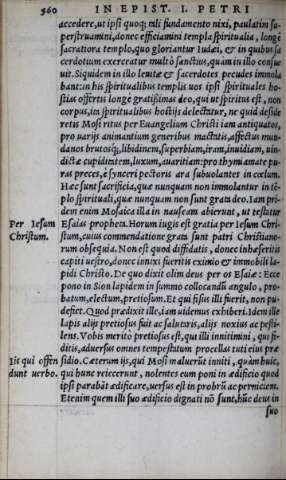 360 IN EPIST. I. PETRI
accedere, ut ipsi quoq; tali fundamento nixi, paulatim su-
perstruamini, donec efficiamini templa spiritualia, longè
sacratiora templo, quo gloriantur Iudæi, & in quibus sa
cerdotium exerceatur multò sanctius, quàm in illo consue
uit. Siquidem in illo leuitæ & sacerdotes pecudes immola
bant: in his spiritualibus templis uos ipsi spirituales ho-
stias offertis longè gratissimas deo, qui ut spiritus est, non
corpus, ita spiritualibus hostijs delectatur, ne quid deside
retis Mosi ritus per Euangelium Christi iam antiquatos,
pro uarijs animantium generibus mactatis, affectus mun-
danos brutosq;, libidinem, superbiam, iram, inuidiam, uin-
dictæ cupiditatem, luxum, auaritiam: pro thymiamate pu-
ras preces, è synceri pectoris ara subuolantes in cœlum.
Hæc sunt sacrificia, quæ nunquam non immolantur in tẽ-
plo spirituali, quæ nunquam non sunt grata deo. Iam pri-
dem enim Mosaica illa in nauseam abierunt, ut testatur
Per Iesum
Christum.
Esaias propheta. Horum iugis est gratia per Iesum Chri-
stum, cuius commendatione grata sunt patri Christiano-
rum obsequia. Non est quod diffidatis, donec inhæseritis
capiti uestro, donec innixi fueritis eximio & immobili la-
pidi Christo. De quo dixit olim deus per os Esaiæ: Ecce
pono in Sion lapidem in summo collocandũ angulo, pro-
batum, electum, pretiosum. Et qui fisus illi fuerit, non pu-
defiet. Quod prædixit ille, iam uidemus exhiberi. Idem ille
lapis alijs pretiosus fuit ac salutaris, alijs noxius ac pesti-
lens. Vobis meritò pretiosus est, qui illi innitimini, qui fi-
ditis, aduersus omnes tempestatum procellas tuti eius præ
Iis qui offen
dunt uerbo.
sidio. Cæterum ijs, qui Mosi maluerũt inniti, quàm huic,
qui hunc reiecerunt, nolentes eum poni in ædificio quod
ipsi parabãt ædificare, uersus est in probrũ ac perniciem.
Etenim quem illi suo ædificio dignati nõ sunt, hũc deus in
suo